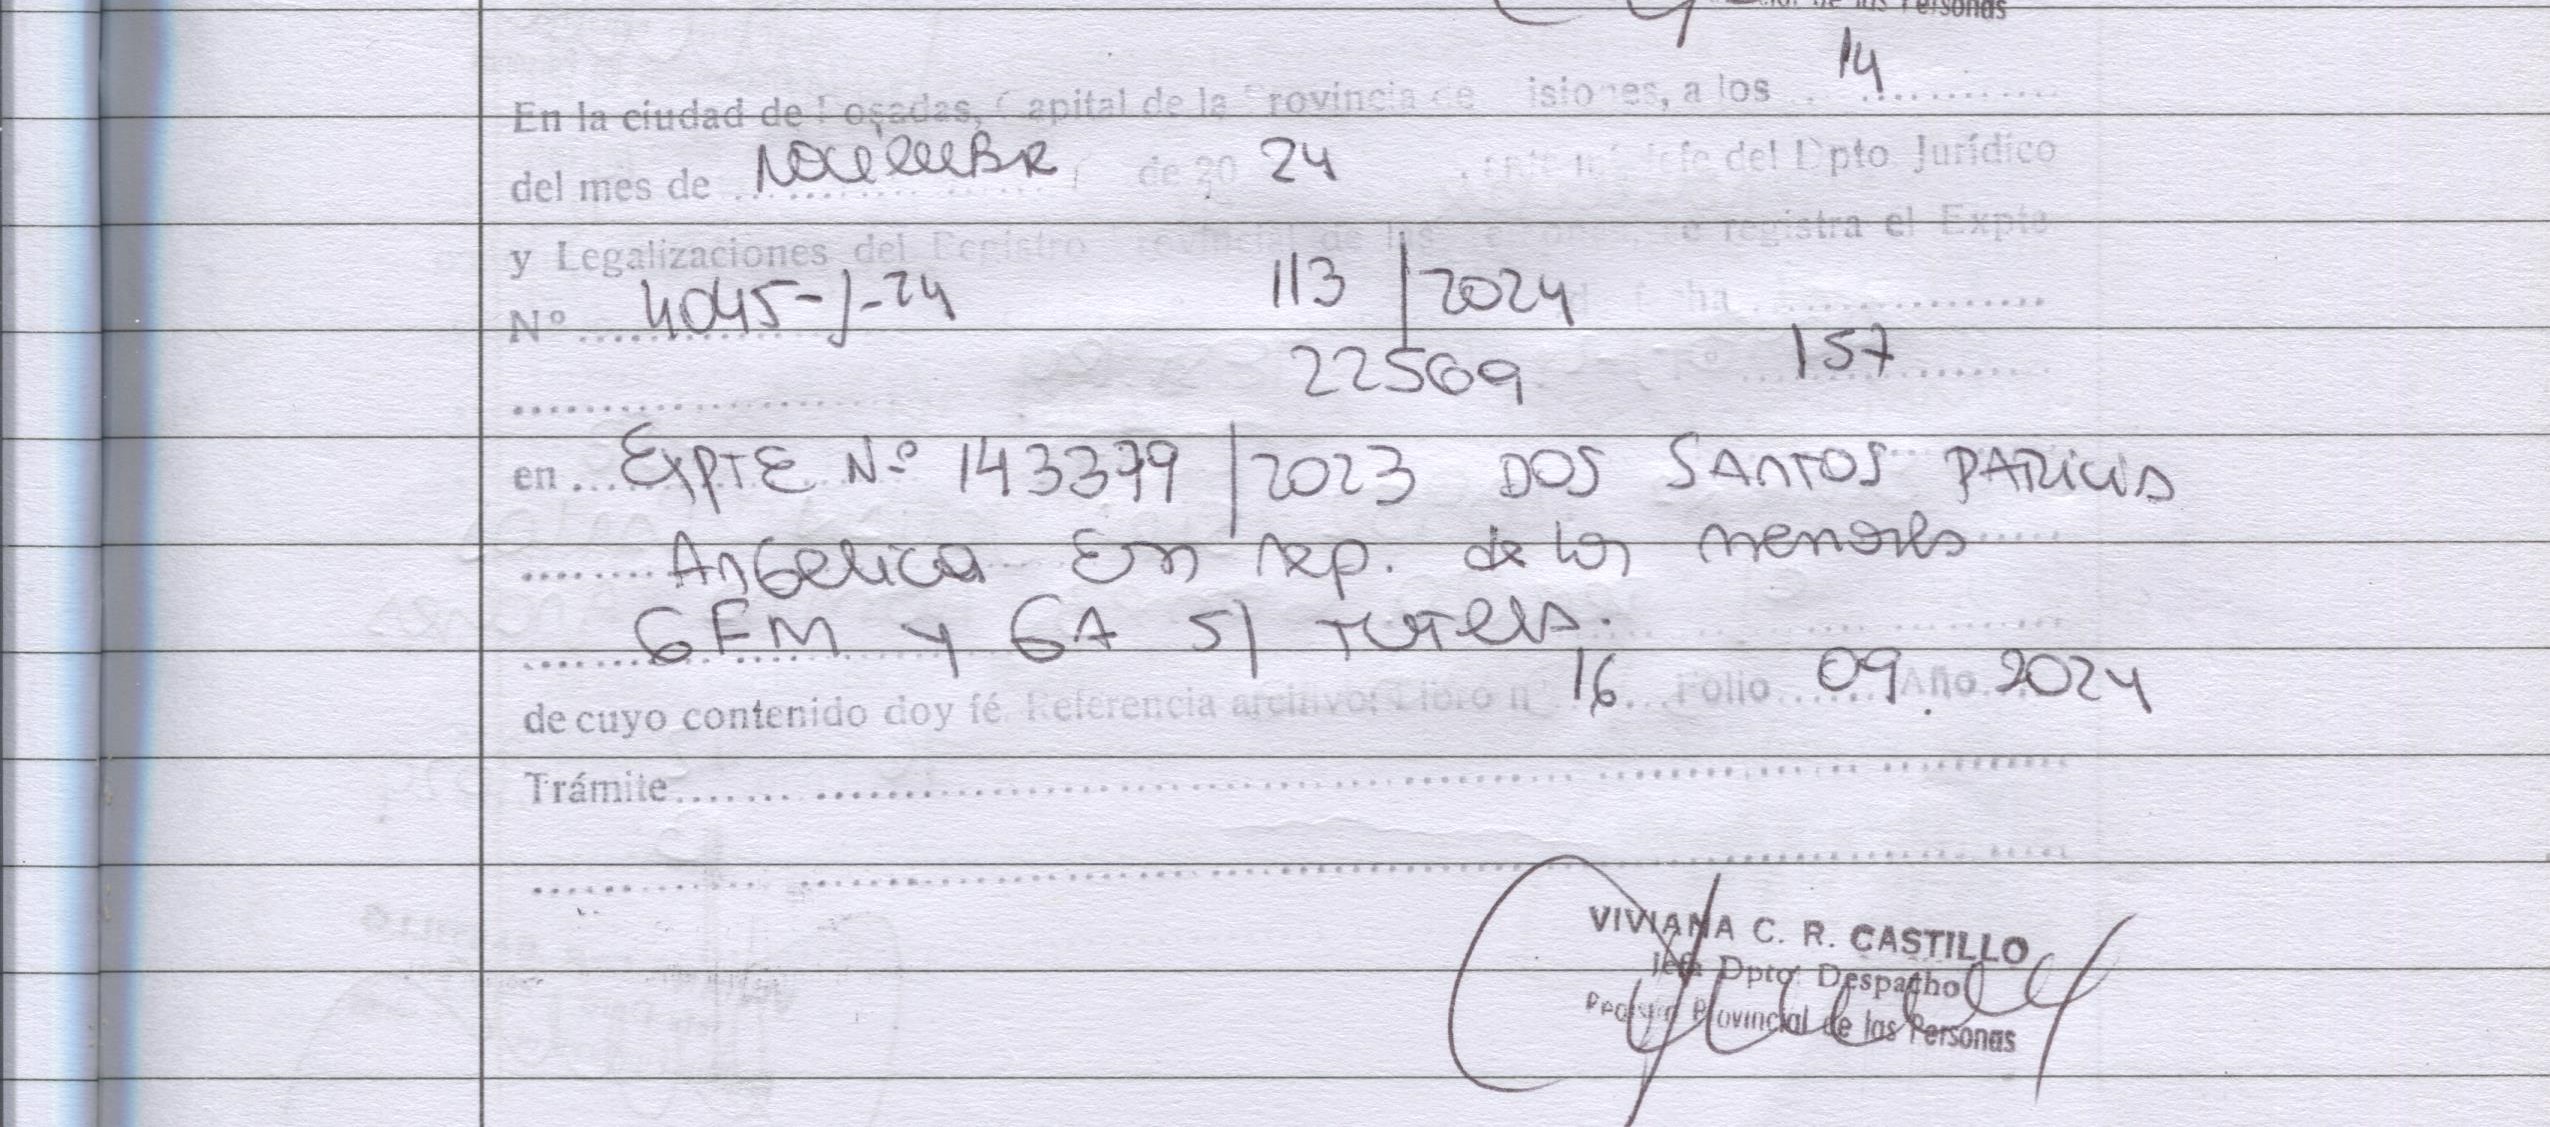 de las Personas
En la ciudad de Posadas, Capital de la Provincia de Misiones, a los 14
del mes de NOVIEMBR de 20 24 ante mí Jefe del Dpto Jurídico
y Legalizaciones del Registro Provincial de las Personas, se registra el Expte
Nº 4045-J-24 113/2024
22569 157
en EXPTE Nº 143379/2023 DOS SANTOS PATRICIA
ANGELICA En rep. de los menores
GFM y GA S/ TUTELA.
de cuyo contenido doy fé. Referencia archivo: Libro nº 16 Folio 09 Año 2024
Trámite
VIVIANA C. R. CASTILLO
Jefa Dpto. Despacho
Registro Provincial de las Personas